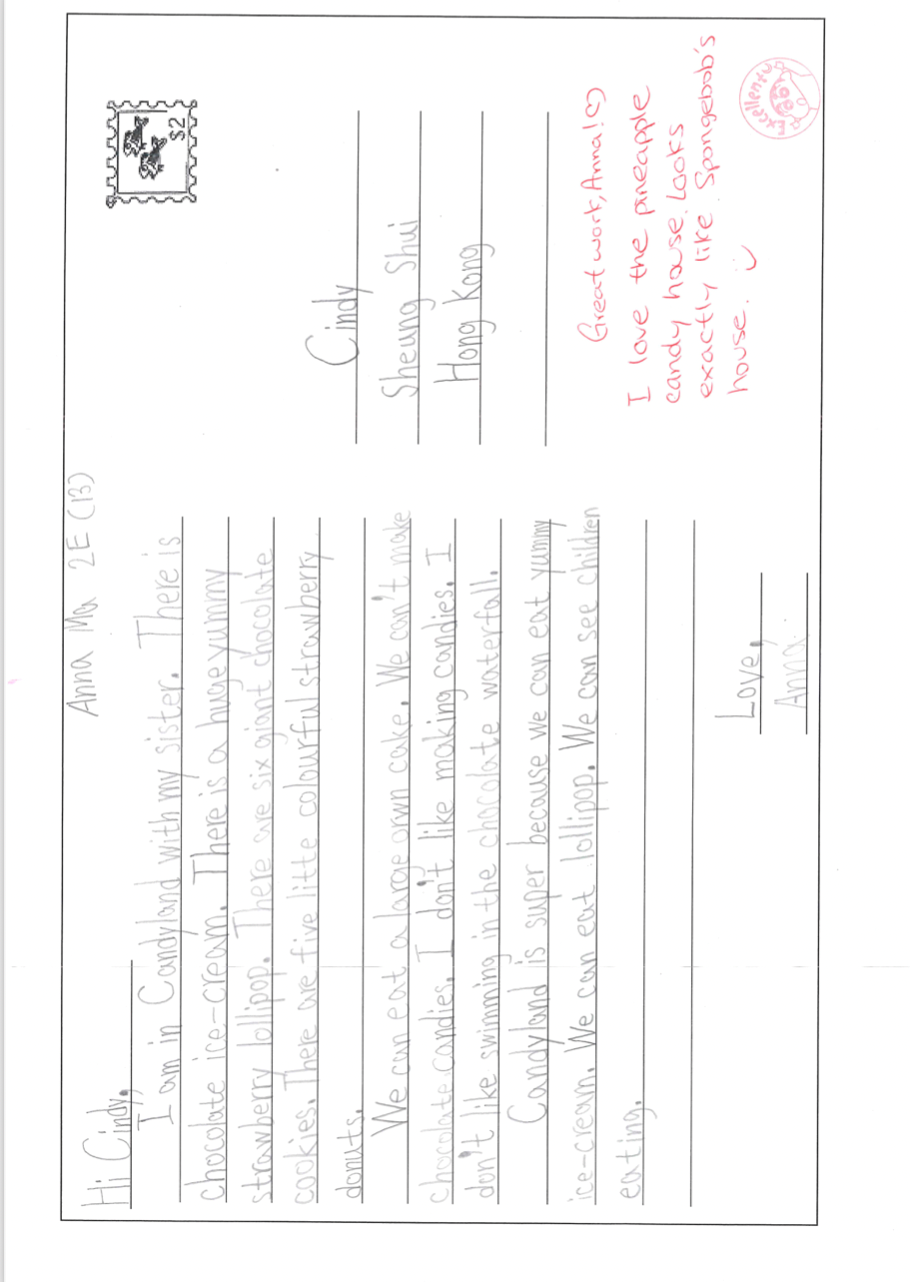 Anna Ma 2E (13)
Hi Cindy,
I am in Candyland with my sister. There is
chocolate ice-cream. There is a huge yummy
strawberry lollipop. There are six giant chocolate
cookies. There are five litte colourful strawberry
donuts.
We can eat a large orwn cake. We can't make
chocolate candies. I don't like making candies. I
don't like swimming in the chocolate waterfall.
Candyland is super because we can eat yummy
ice-cream. We can eat lollipop. We can see children
eating.
Love,
Anna.
$2
Cindy
Sheung Shui
Hong Kong
Great work, Anna!
I love the pineapple
candy house. Looks
exactly like Spongebob's
house.
Excellent